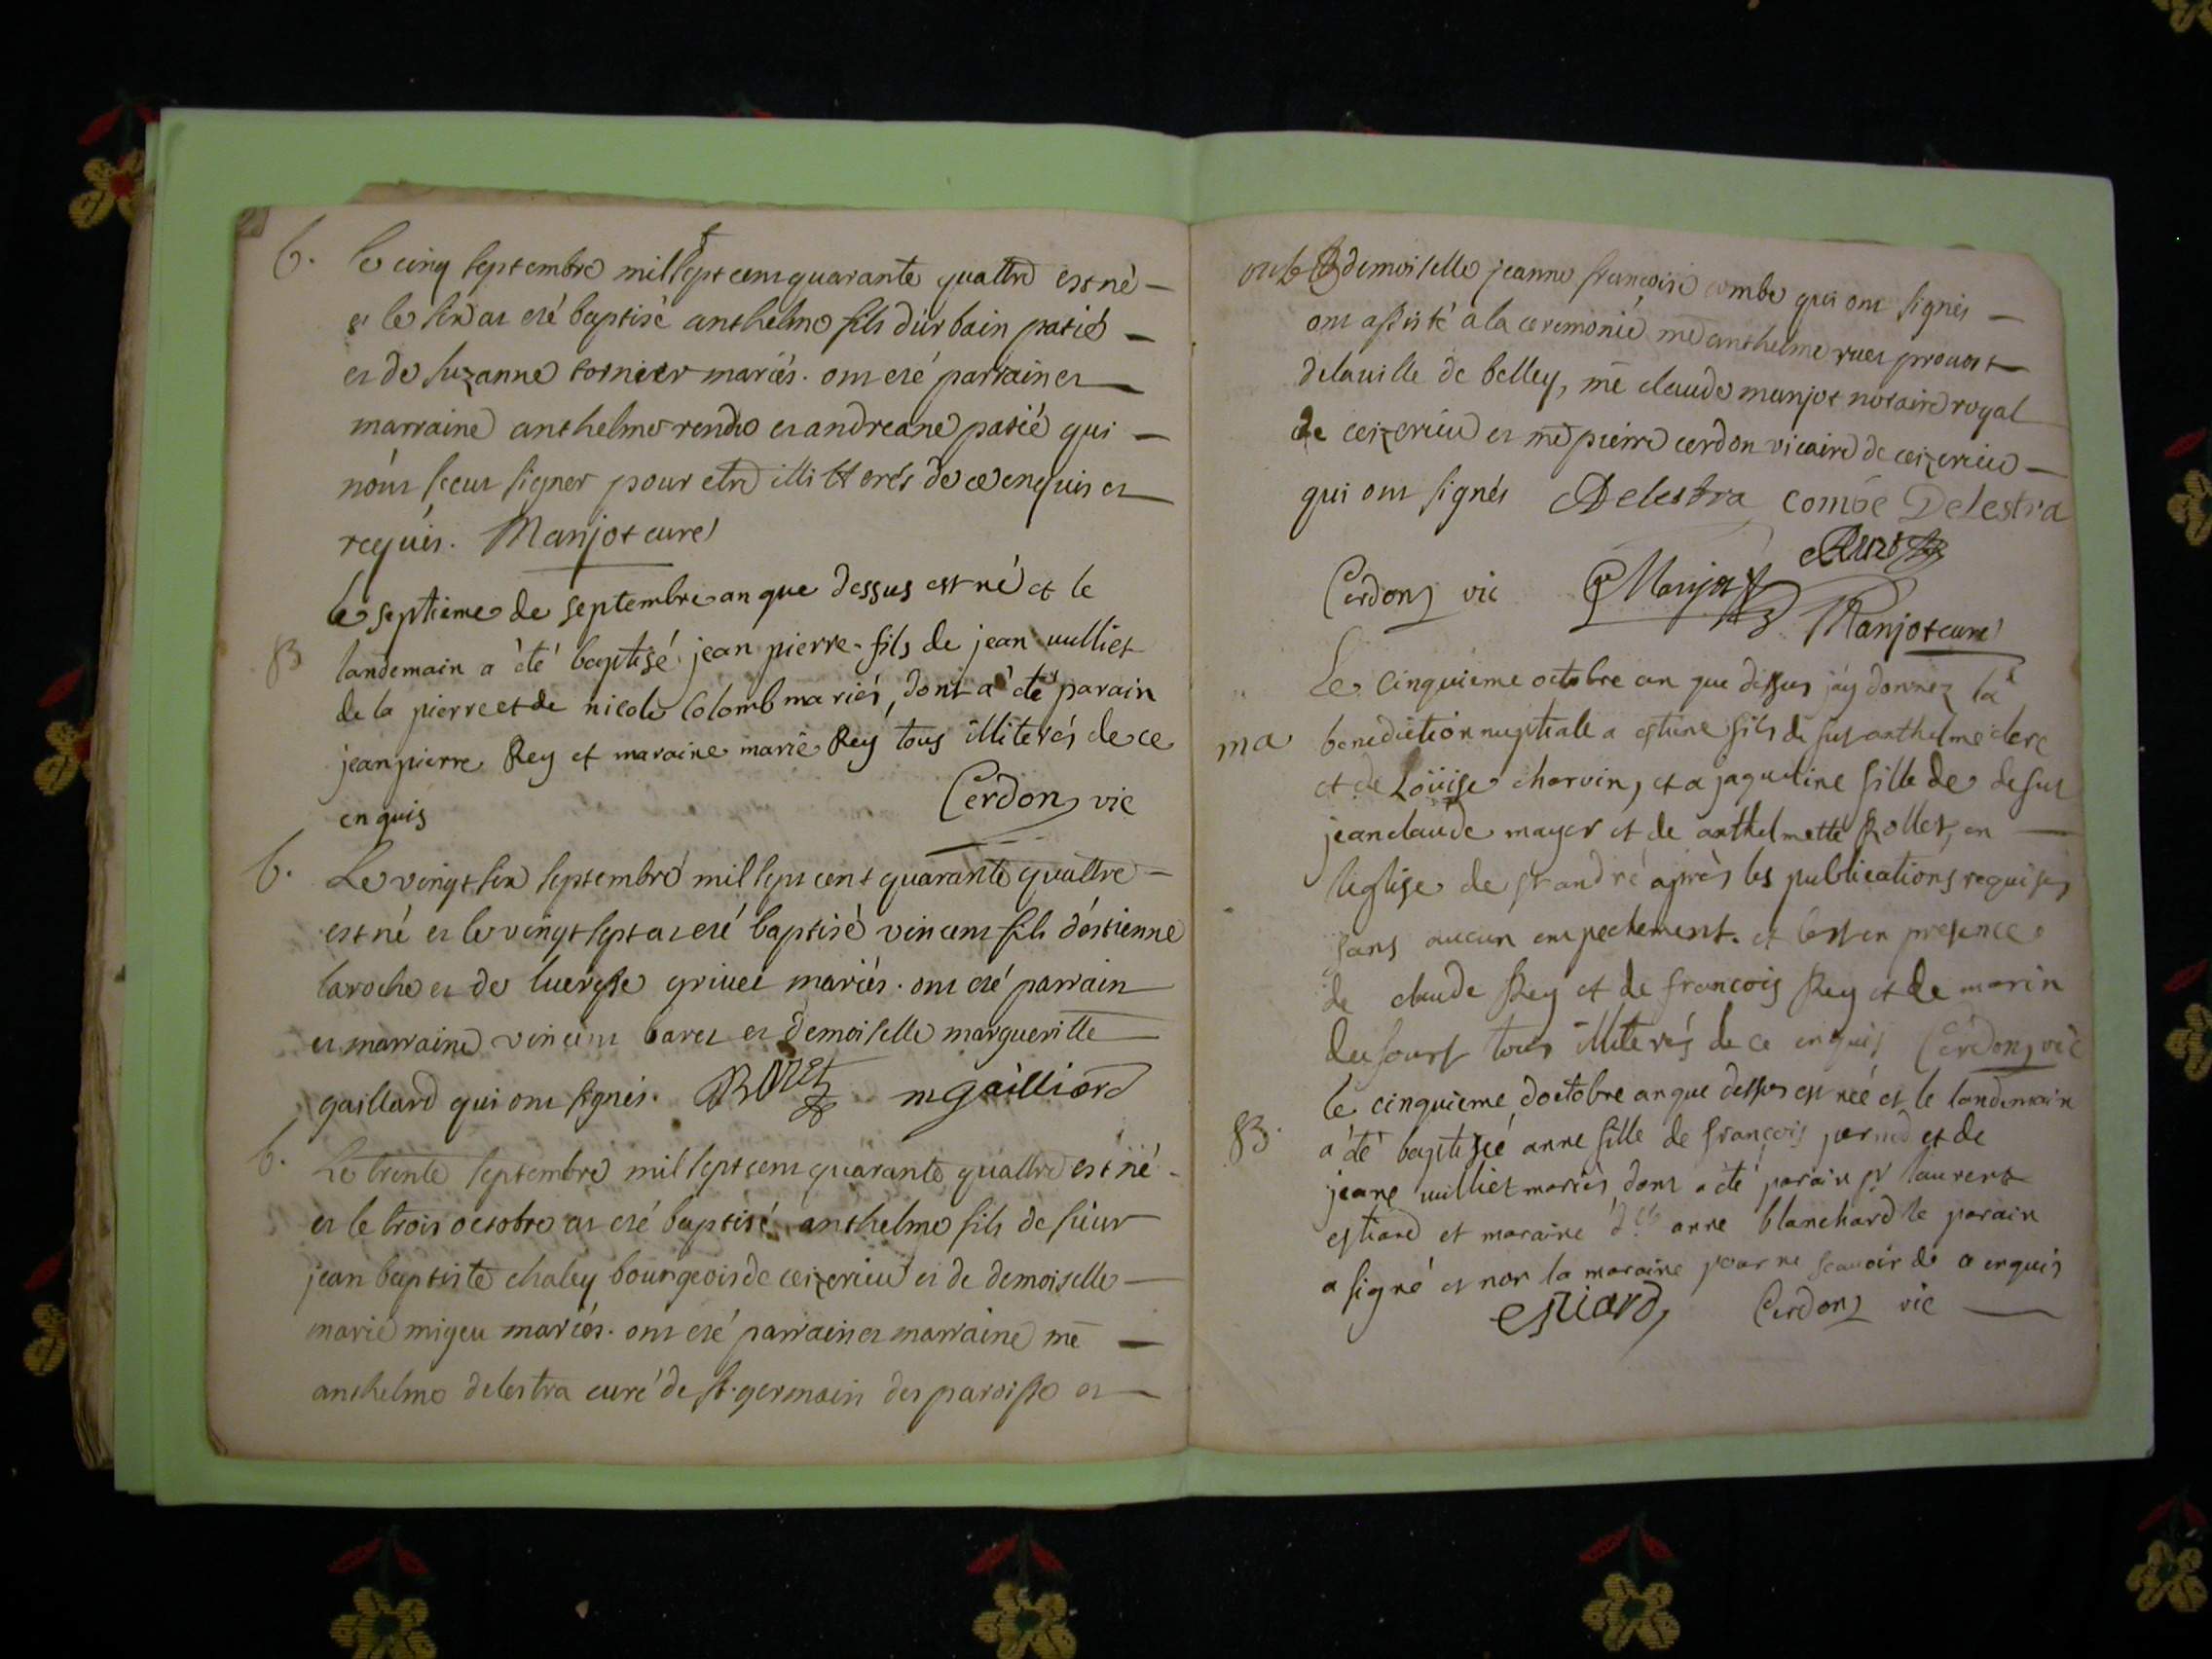 b. Le cinq septembre mil sept cent quarante quattre est né —
et le six at eté baptisé anthelme fils durbain patié —
et de suzanne tornier mariés. ont eté parrain et —
marraine anthelme rendu et andreane patié qui —
nont sceut signer pour etre illitterés de ce enquis et
requis. Manjot curé
le septieme de septembre an que dessus est né et le
B landemain a été baptisé jean pierre fils de jean vulliet
de la pierre et de nicole Colomb mariés, dont a été parain
jean pierre Rey et maraine marie Rey tous illiterés de ce
enquis Cerdon vic
b. Le vingt six septembre mil sept cent quarante quattre —
est né et le vingt sept at eté baptisé vincent fils d'estienne
laroche et de lucresse grivet mariés. ont eté parrain
et marraine vincent baret et demoiselle margueritte
gaillard qui ont signés. Baret mgailliard
b. Le trente septembre mil sept cent quarante quattre est né -
et le trois octobre at eté baptisé anthelme fils de sieur
jean baptiste chaley bourgeois de ceizerieu et de demoiselle —
marie migeu mariés. ont eté parrain et marraine me —
anthelme delestra curé de st. germain des paroisse et —
demoiselle jeanne francoise combe qui ont signés —
ont assisté a la ceremonie me anthelme ruet provost —
de la ville de belley, me claude manjot notaire royal
de ceizerieu et me pierre cerdon vicaire de ceizerieu —
qui ont signés Delestra combe Delestra
Ruet
Cerdon vic Manjot
Manjot curé
Le cinquieme octobre an que dessus jay donnez la
ma benediction nuptiale a estiene fils de fut anthelme clerc
et de Loüise charvin, et a jaqueline fille de defut
jean claude mayer et de anthelmette Rollet, en —
leglise de st andré aprés les publications requises
sans aucun empechement. et lest en presence
de claude Rey et de francois Rey et de marin
dufourt tous illiterés de ce enquis Cerdon vic
le cinquieme doctobre an que dessus est née et le landemain
B. a été baptisée anne fille de françois pernod et de
jeane vulliet mariés, dont a été parain sr laurent
estiard et maraine dlle anne blanchard le parain
a signé et non la maraine pour ne scauoir de ce enquis
estiard, Cerdon vic —